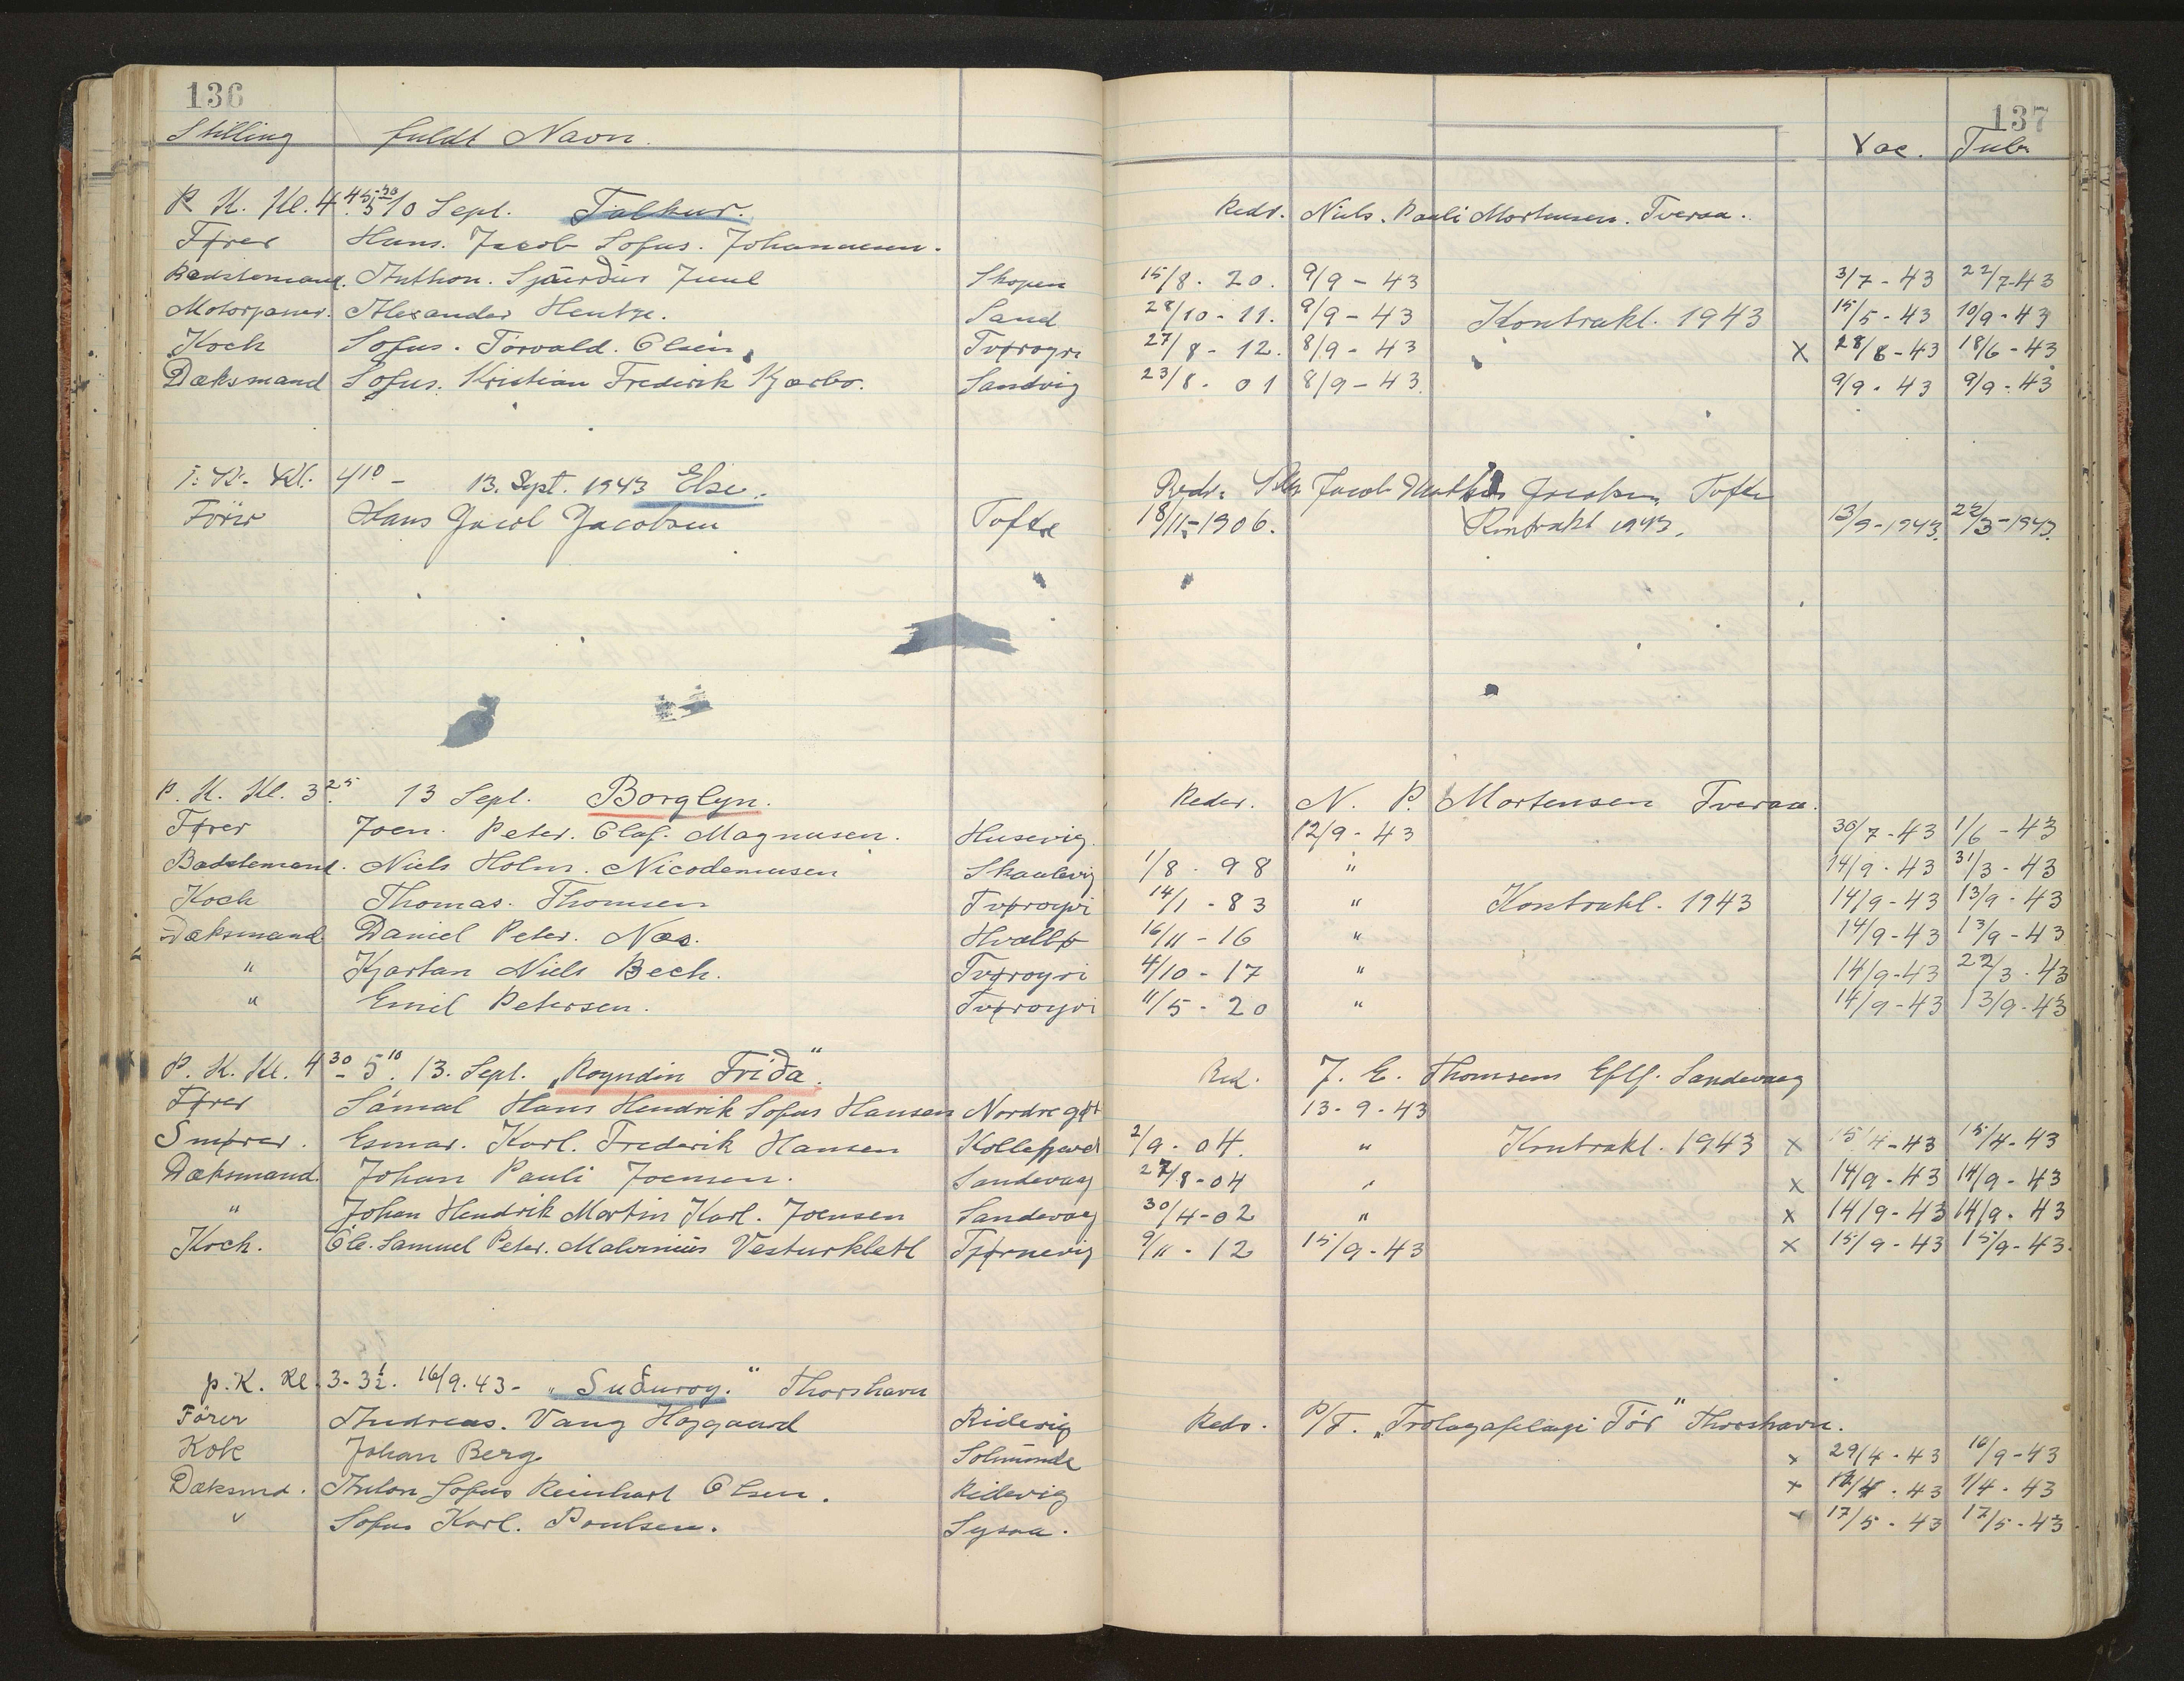 136
137
Stilling fuldt Navn. Vac. Tub.
P. K. Kl. 4 45-5 30 10 Sept. Talkur. Redr. Niels. Pauli Mortensen. Tveraa.
Fører Hans. Jacob Sofus. Johannesen.
Bedstemand. Anthon. Sjúrður Juul Skopen 15/8 - 20. 9/9 - 43 3/7 - 43 22/7-43
Motorpasser. Alexander Hentze. Sand 28/10 - 11. 9/9 - 43 Kontrakt. 1943 15/5 - 43 10/9 - 43
Koch Sofus. Torvald. Olsen Tvøroyri 27/8 - 12. 8/9 - 43 X 28/8 - 43 18/6 - 43
Dæksmand Sofus. Kristian Frederik Kjærbo. Sandvig 23/8 - 01 8/9 - 43 9/9 - 43 9/9 - 43
P. K. Kl. 4 10 - 13. Sept. 1943 Else. Redr. Jacob Jacobsen Tofte
Förer Hans Jacob Jacobsen Tofte 18/11-1906. Kontrakt 1943. 13/9-1943. 22/3-1943.
P. K. Kl. 3 25 13 Sept. Borglyn. Reder. N. P. Mortensen Tveraa.
Fører Joen. Peter. Olaf. Magnusen. Husevig. 12/9 - 43 30/7 - 43 1/6 - 43
Bedstemand. Niels Holm. Nicodemusen Skaalevig 1/8 - 98 " 14/9 - 43 31/3 - 43
Koch Thomas. Thomsen Tvøroyri 14/1 - 83 " Kontrakt. 1943 14/9 - 43 13/9 - 43
Dæksmand Daniel Peter. Næs. Hvalbø 16/11 - 16 " 14/9 - 43 13/9 - 43
" Kjartan Niels Bech. Tvøroyri 4/10 - 17 " 14/9 - 43 22/3 - 43
" Emil Petersen. Tvøroyri 11/5 - 20 " 14/9 - 43 13/9 - 43
P. K. Kl. 4 30 - 5 10. 13. Sept. "Royndin Friða". Red. J. E. Thomsens Eftf. Sandevaag
Fører Sámal Hans Hendrik Sofus Hansen Nordregøt 13 - 9 - 43
Smører. Esmar. Karl. Frederik Hansen Kollefjord 2/9 - 04. " Kontrakt. 1943 X 15/4 - 43 15/4 - 43
Dæksmand. Johan Pauli Joensen. Sandevaag 27/8 - 04 " X 14/9 - 43 14/9 - 43
" Johan Hendrik Martin Karl. Joensen Sandevaag 30/4 - 02 " X 14/9 - 43 14/9 - 43
Koch. Ole. Samuel Peter. Malvinius Vesturklett Tjørnevig 9/11 - 12 15/9 - 43 X 15/9 - 43 15/9 - 43
p. K. Kl. 3 - 3 1/2. 16/9. 43 - "Suðuroy." Thorshavn
Förer Andreas. Vang Højgaard Ridevig Redr. P/F. "Trolarafelagi Tór" Thorshavn.
Kok Johan Berg Solmunde x 29/4 - 43 16/9 - 43
Dæksmd. Anton Sofus Reinhart Olsen. Ridevig x 43 1/4 - 43
" Sofus Karl. Poulsen. Lysaa. x 17/5 - 43 17/5 - 43